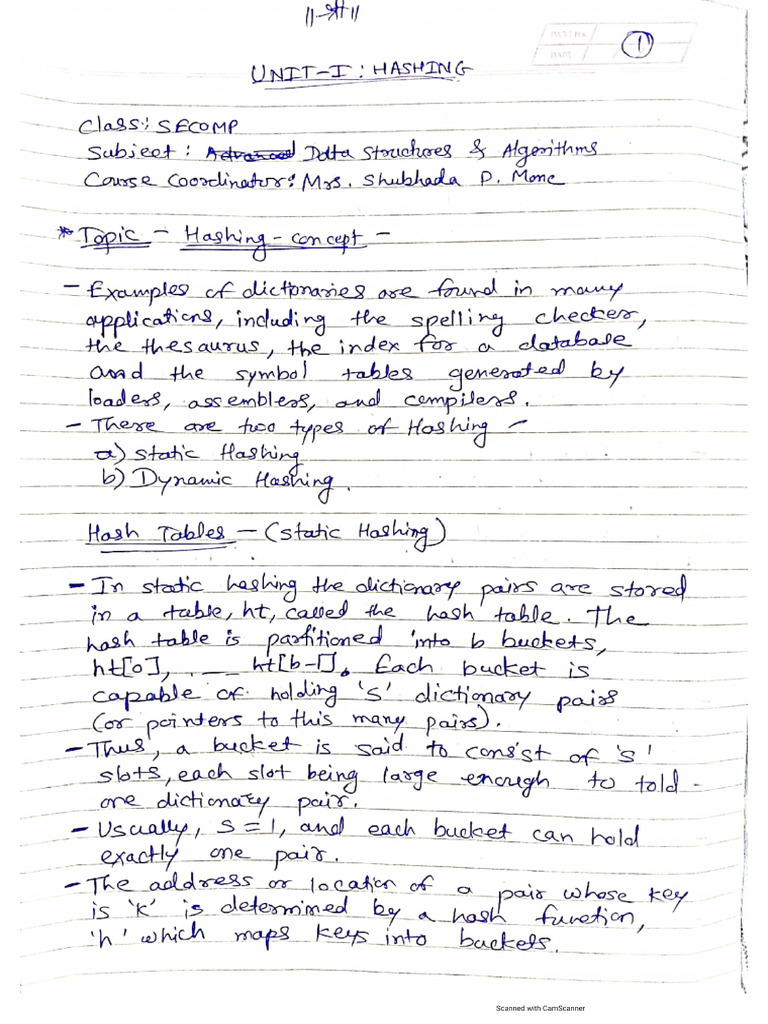 ॥श्री॥
PAGE No.
DATE
1
UNIT-I: HASHING
Class: SECOMP
Subject: Advanced Data Structures & Algorithms
Course Coordinator: Mrs. Shubhada P. Mone
* Topic - Hashing-concept -
- Examples of dictionaries are found in many
applications, including the spelling checker,
the thesaurus, the index for a database
and the symbol tables generated by
loaders, assemblers, and compilers.
- There are two types of Hashing -
a) Static Hashing
b) Dynamic Hashing.
Hash Tables - (Static Hashing)
- In static hashing the dictionary pairs are stored
in a table, ht, called the hash table. The
hash table is partitioned into b buckets,
ht[0], .__ ht[b-1]. Each bucket is
capable of holding 's' dictionary pairs
(or pointers to this many pairs).
- Thus, a bucket is said to consist of 's'
slots, each slot being large enough to told
one dictionary pair.
- Usually, S=1, and each bucket can hold
exactly one pair.
- The address or location of a pair whose key
is 'k' is determined by a hash function,
'h' which maps keys into buckets.
Scanned with CamScanner